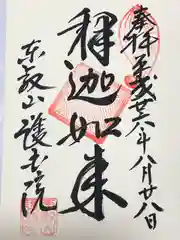 奉拝 平成廿六年八月廿八日
釋迦如来
東叡山 護国院